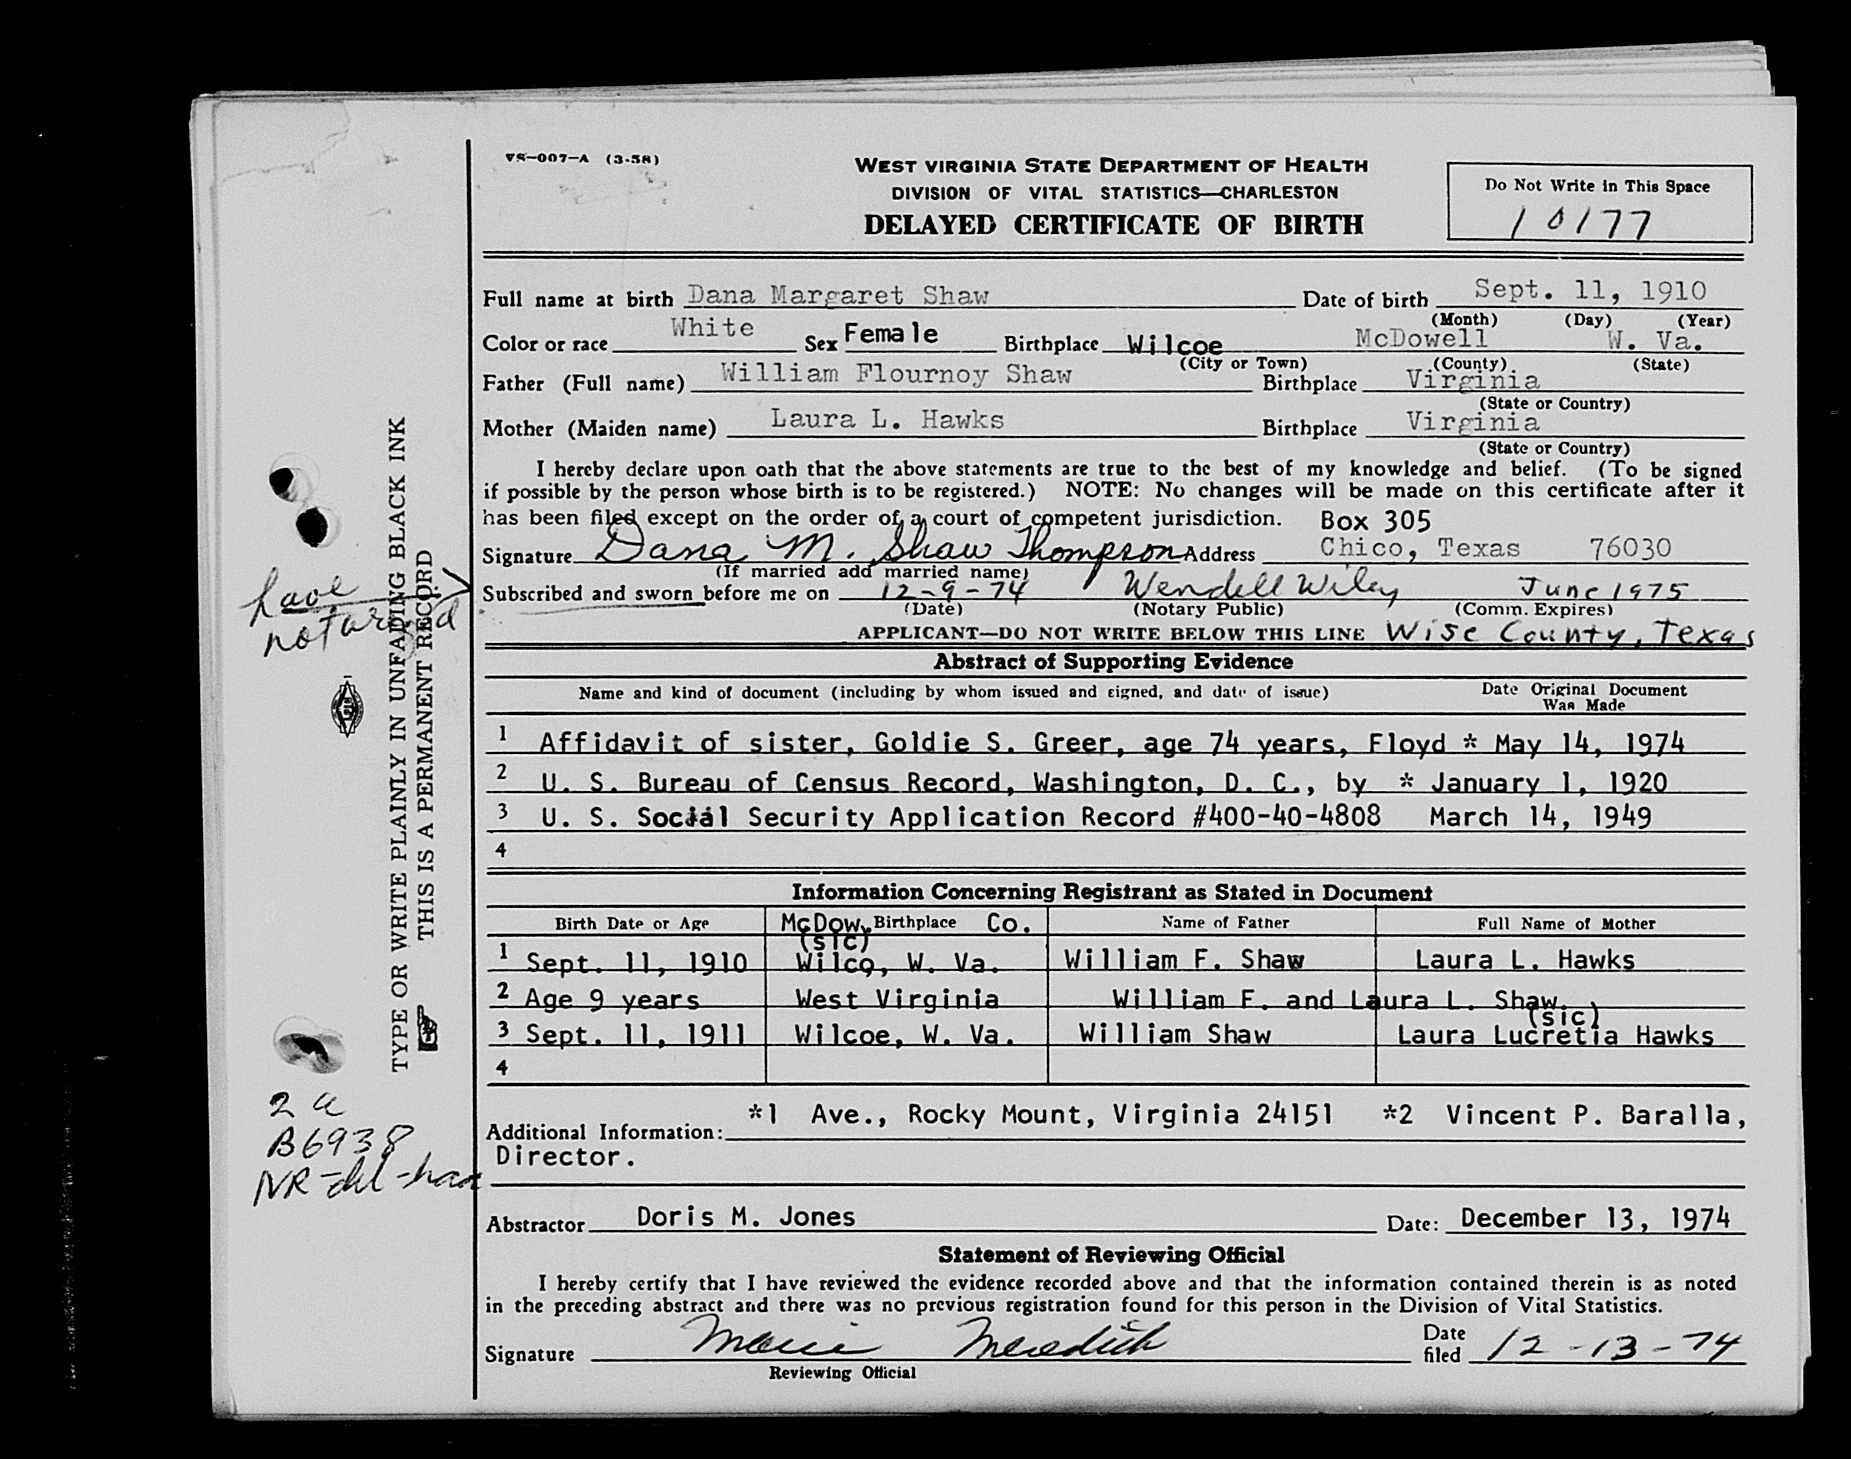 VS—007—A (3-58)
WEST VIRGINIA STATE DEPARTMENT OF HEALTH
DIVISION OF VITAL STATISTICS—CHARLESTON
DELAYED CERTIFICATE OF BIRTH
Do Not Write in This Space
10177
Full name at birth Dana Margaret Shaw Date of birth Sept. 11, 1910
(Month) (Day) (Year)
Color or race White Sex Female Birthplace Wilcoe McDowell W. Va.
(City or Town) (County) (State)
Father (Full name) William Flournoy Shaw Birthplace Virginia
(State or Country)
Mother (Maiden name) Laura L. Hawks Birthplace Virginia
(State or Country)
I hereby declare upon oath that the above statements are true to the best of my knowledge and belief. (To be signed
if possible by the person whose birth is to be registered.) NOTE: No changes will be made on this certificate after it
has been filed except on the order of a court of competent jurisdiction. Box 305
Signature Dana M. Shaw Thompson Address Chico, Texas 76030
(If married add married name)
Subscribed and sworn before me on 12-9-74 Wendell Wiley June 1975
(Date) (Notary Public) (Comm. Expires)
APPLICANT—DO NOT WRITE BELOW THIS LINE Wise County, Texas
Abstract of Supporting Evidence
Name and kind of document (including by whom issued and signed, and date of issue) Date Original Document
Was Made
1 Affidavit of sister, Goldie S. Greer, age 74 years, Floyd * May 14, 1974
2 U. S. Bureau of Census Record, Washington, D. C., by * January 1, 1920
3 U. S. Social Security Application Record #400-40-4808 March 14, 1949
4
Information Concerning Registrant as Stated in Document
Birth Date or Age McDow. Birthplace Co. Name of Father Full Name of Mother
(sic)
1 Sept. 11, 1910 Wilco, W. Va. William F. Shaw Laura L. Hawks
2 Age 9 years West Virginia William F. and Laura L. Shaw
(sic)
3 Sept. 11, 1911 Wilcoe, W. Va. William Shaw Laura Lucretia Hawks
4
*1 Ave., Rocky Mount, Virginia 24151 *2 Vincent P. Baralla,
Additional Information:
Director.
Abstractor Doris M. Jones Date: December 13, 1974
Statement of Reviewing Official
I hereby certify that I have reviewed the evidence recorded above and that the information contained therein is as noted
in the preceding abstract and there was no previous registration found for this person in the Division of Vital Statistics.
Signature Marie Meredith Date
filed 12-13-74
Reviewing Official
TYPE OR WRITE PLAINLY IN UNFADING BLACK INK
THIS IS A PERMANENT RECORD
have
notarized
2 a
B6938
NR-del-